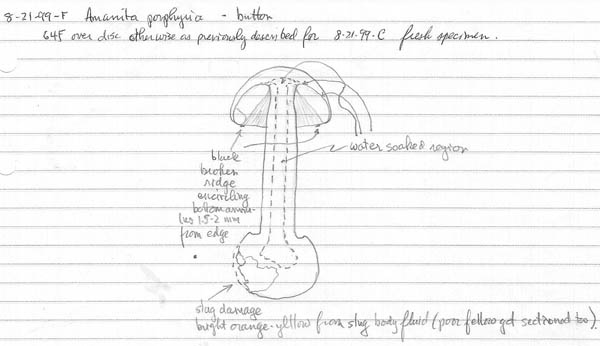 8-21-99-F Amanita porphyria - button
64F over disc otherwise as previously described for 8-21-99-C fresh specimen.
water soaked region
black
broken
ridge
encircling
bottom annu-
lus 1.5-2 mm
from edge
slug damage
bright orange-yellow from slug body fluid (poor fellow got sectioned too).